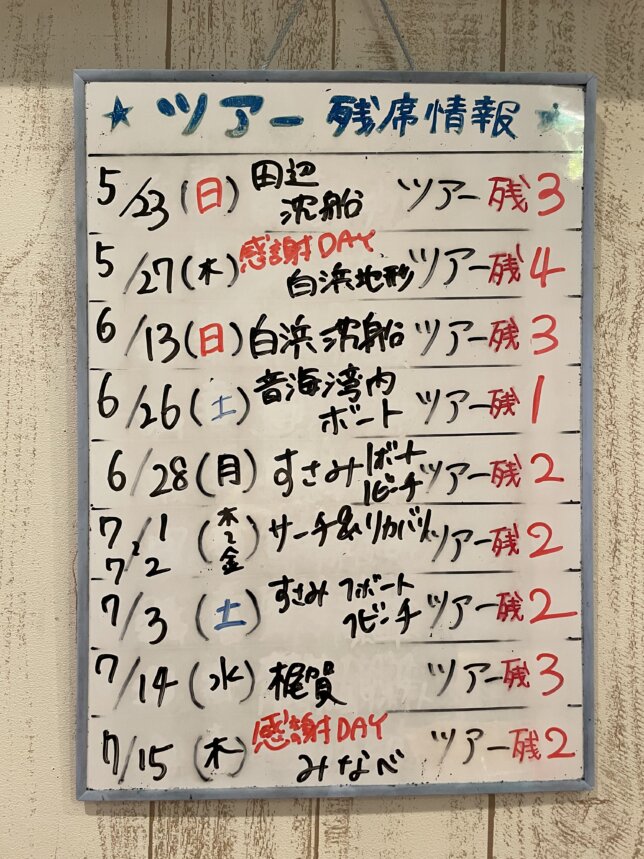 ★ ツアー 残席情報 ★
5/23(日) 田辺 沈船 ツアー残3
5/27(木) 感謝DAY 白浜地形 ツアー残4
6/13(日) 白浜沈船 ツアー残3
6/26(土) 音海湾内 ボート ツアー残1
6/28(月) すさみ 1ボート 1ビーチ ツアー残2
7/1 7/2 (木 金) サーチ&リカバリー ツアー残2
7/3(土) すさみ 1ボート 1ビーチ ツアー残2
7/14(水) 梶賀 ツアー残3
7/15(木) 感謝DAY みなべ ツアー残2